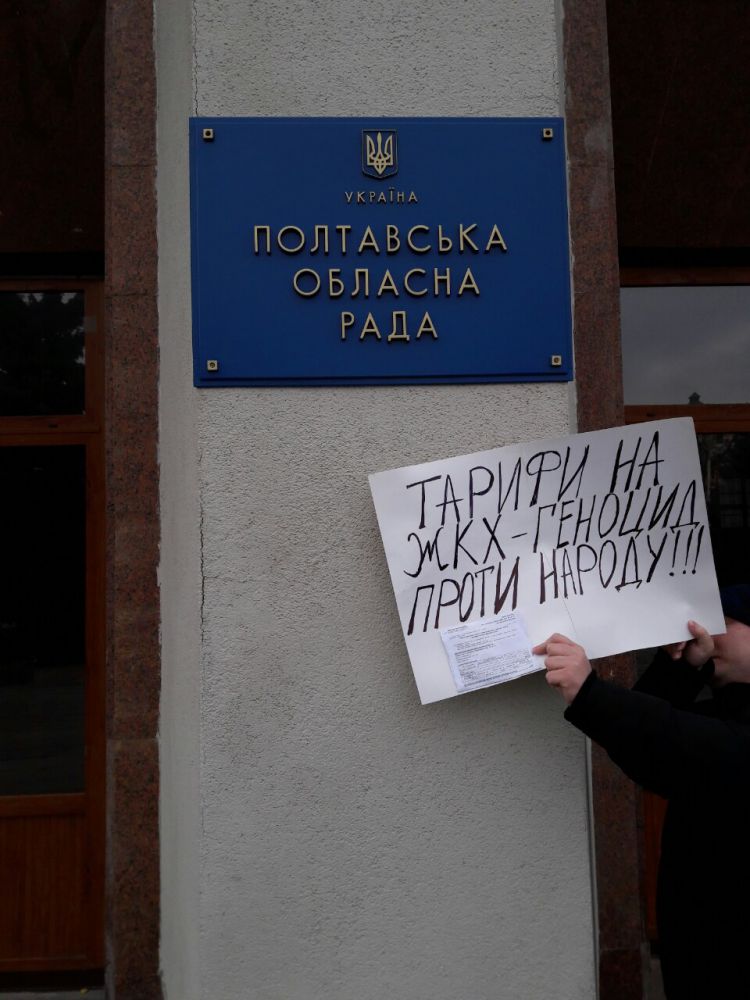 УКРАЇНА
ПОЛТАВСЬКА
ОБЛАСНА
РАДА
ТАРИФИ НА
ЖКХ-ГЕНОЦИД
ПРОТИ НАРОДУ!!!